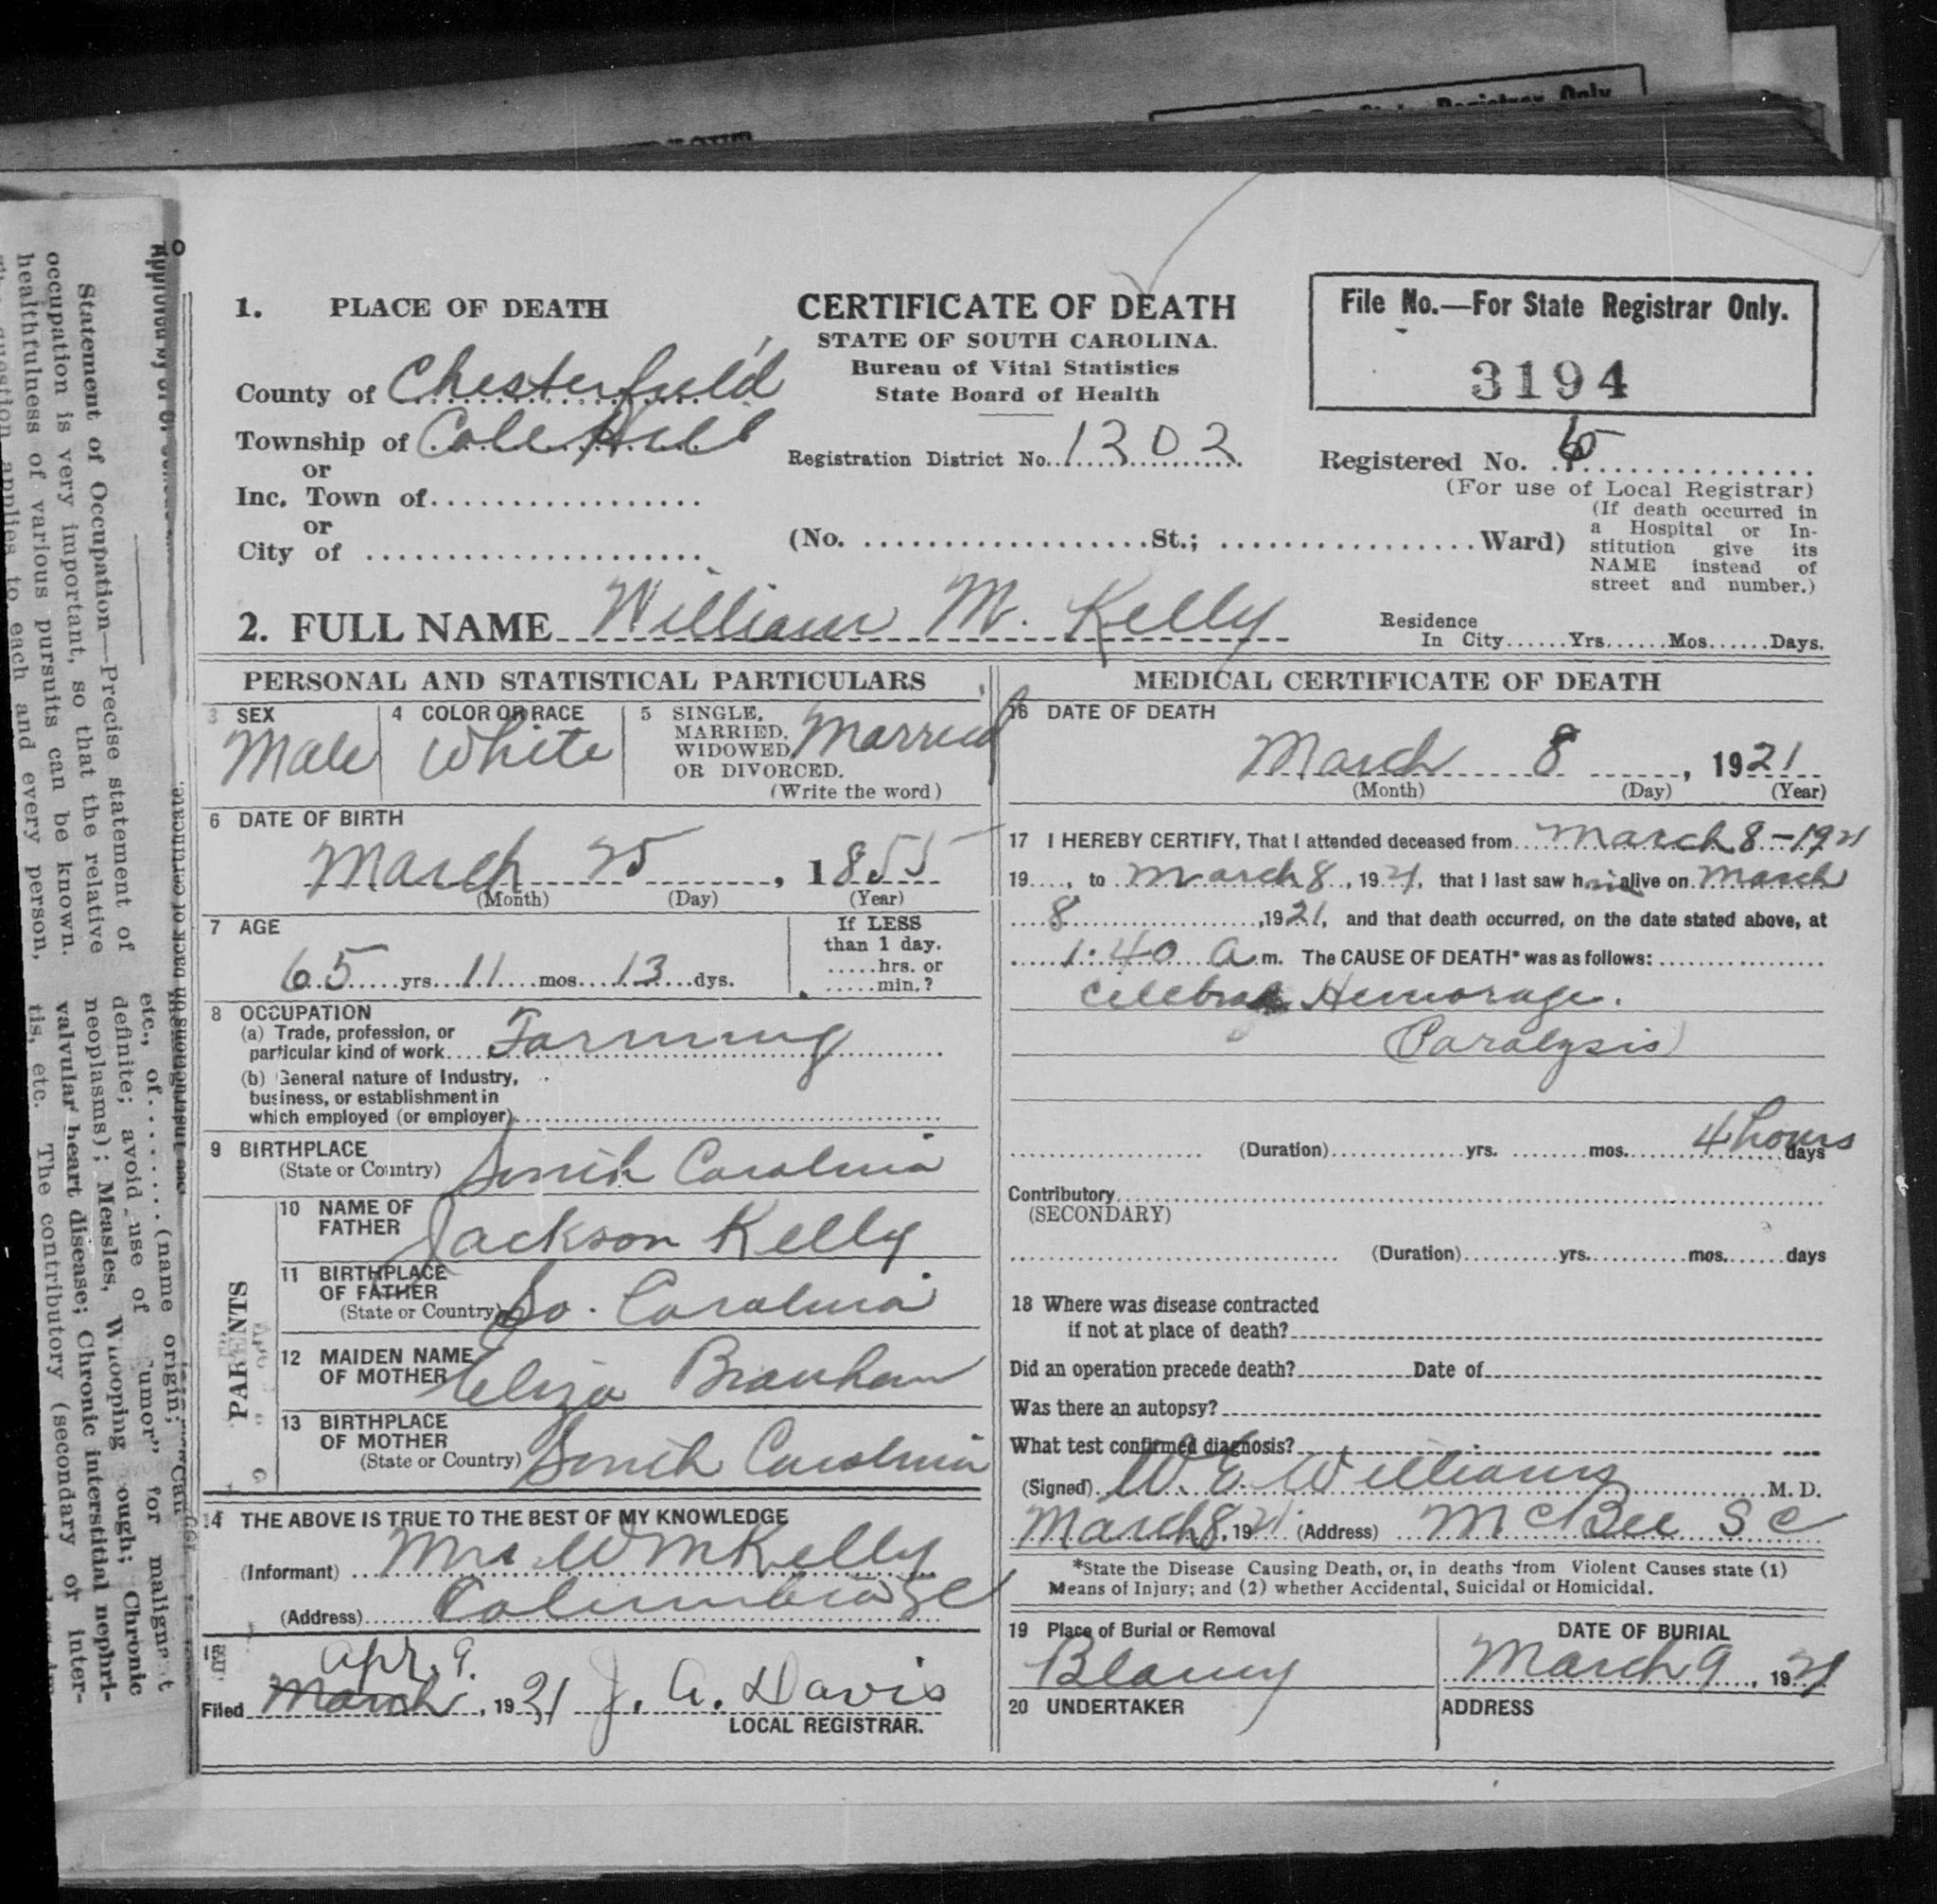 1. PLACE OF DEATH
County of Chesterfield
Township of Cole Hill
or
Inc. Town of
or
City of
CERTIFICATE OF DEATH
STATE OF SOUTH CAROLINA.
Bureau of Vital Statistics
State Board of Health
Registration District No. 1302
(No. St.; Ward)
File No.—For State Registrar Only.
3194
Registered No.
(For use of Local Registrar)
(If death occurred in
a Hospital or In-
stitution give its
NAME instead of
street and number.)
2. FULL NAME William M. Kelly
Residence
In City Yrs. Mos. Days.
PERSONAL AND STATISTICAL PARTICULARS
3 SEX
Male
4 COLOR OR RACE
White
5 SINGLE,
MARRIED,
WIDOWED
OR DIVORCED.
(Write the word)
Married
6 DATE OF BIRTH
March 25, 1855
(Month) (Day) (Year)
7 AGE
65 yrs. 11 mos. 13 dys.
If LESS
than 1 day.
hrs. or
min.?
8 OCCUPATION
(a) Trade, profession, or
particular kind of work Farming
(b) General nature of Industry,
business, or establishment in
which employed (or employer)
9 BIRTHPLACE
(State or Country) South Carolina
PARENTS
10 NAME OF
FATHER Jackson Kelly
11 BIRTHPLACE
OF FATHER
(State or Country) So. Carolina
12 MAIDEN NAME
OF MOTHER Eliza Branham
13 BIRTHPLACE
OF MOTHER
(State or Country) South Carolina
14 THE ABOVE IS TRUE TO THE BEST OF MY KNOWLEDGE
(Informant) Mrs W M Kelly
(Address) Columbia SC
15
Apr. 9.
Filed March, 1921 J. A. Davis
LOCAL REGISTRAR.
MEDICAL CERTIFICATE OF DEATH
16 DATE OF DEATH
March 8, 1921
(Month) (Day) (Year)
17 I HEREBY CERTIFY, That I attended deceased from March 8-1921
19 , to March 8, 1921, that I last saw him alive on March
8, 1921, and that death occurred, on the date stated above, at
1:40 a.m. The CAUSE OF DEATH* was as follows:
Celebral Hemorage.
Paralysis
(Duration) yrs. mos. 4 hours days
Contributory
(SECONDARY)
(Duration) yrs. mos. days
18 Where was disease contracted
if not at place of death?
Did an operation precede death? Date of
Was there an autopsy?
What test confirmed diagnosis?
(Signed) W. E. Williams M. D.
March 8, 1921 (Address) McBee S C
*State the Disease Causing Death, or, in deaths from Violent Causes state (1)
Means of Injury; and (2) whether Accidental, Suicidal or Homicidal.
19 Place of Burial or Removal
Blaney
DATE OF BURIAL
March 9, 1921
20 UNDERTAKER
ADDRESS
Statement of Occupation—Precise statement of
occupation is very important, so that the relative
healthfulness of various pursuits can be known.
question applies to each and every person,
etc., of (name origin;
definite; avoid use of for malignant
neoplasms); Measles, Whooping cough; Chronic
valvular heart disease; Chronic interstitial nephri-
tis, etc. The contributory (secondary or inter-